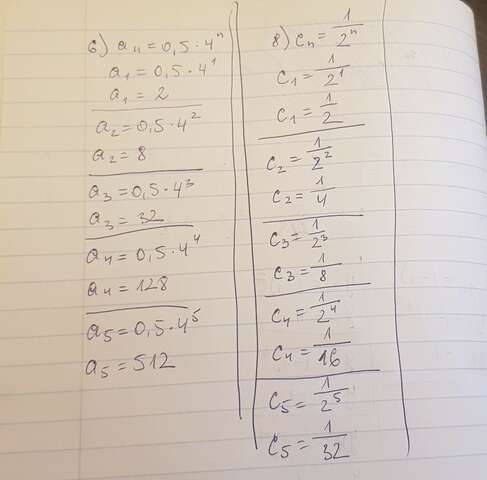 6) aₙ = 0,5 · 4ⁿ
a₁ = 0,5 · 4¹
a₁ = 2
a₂ = 0,5 · 4²
a₂ = 8
a₃ = 0,5 · 4³
a₃ = 32
a₄ = 0,5 · 4⁴
a₄ = 128
a₅ = 0,5 · 4⁵
a₅ = 512
8) cₙ = 1/2ⁿ
c₁ = 1/2¹
c₁ = 1/2
c₂ = 1/2²
c₂ = 1/4
c₃ = 1/2³
c₃ = 1/8
c₄ = 1/2⁴
c₄ = 1/16
c₅ = 1/2⁵
c₅ = 1/32